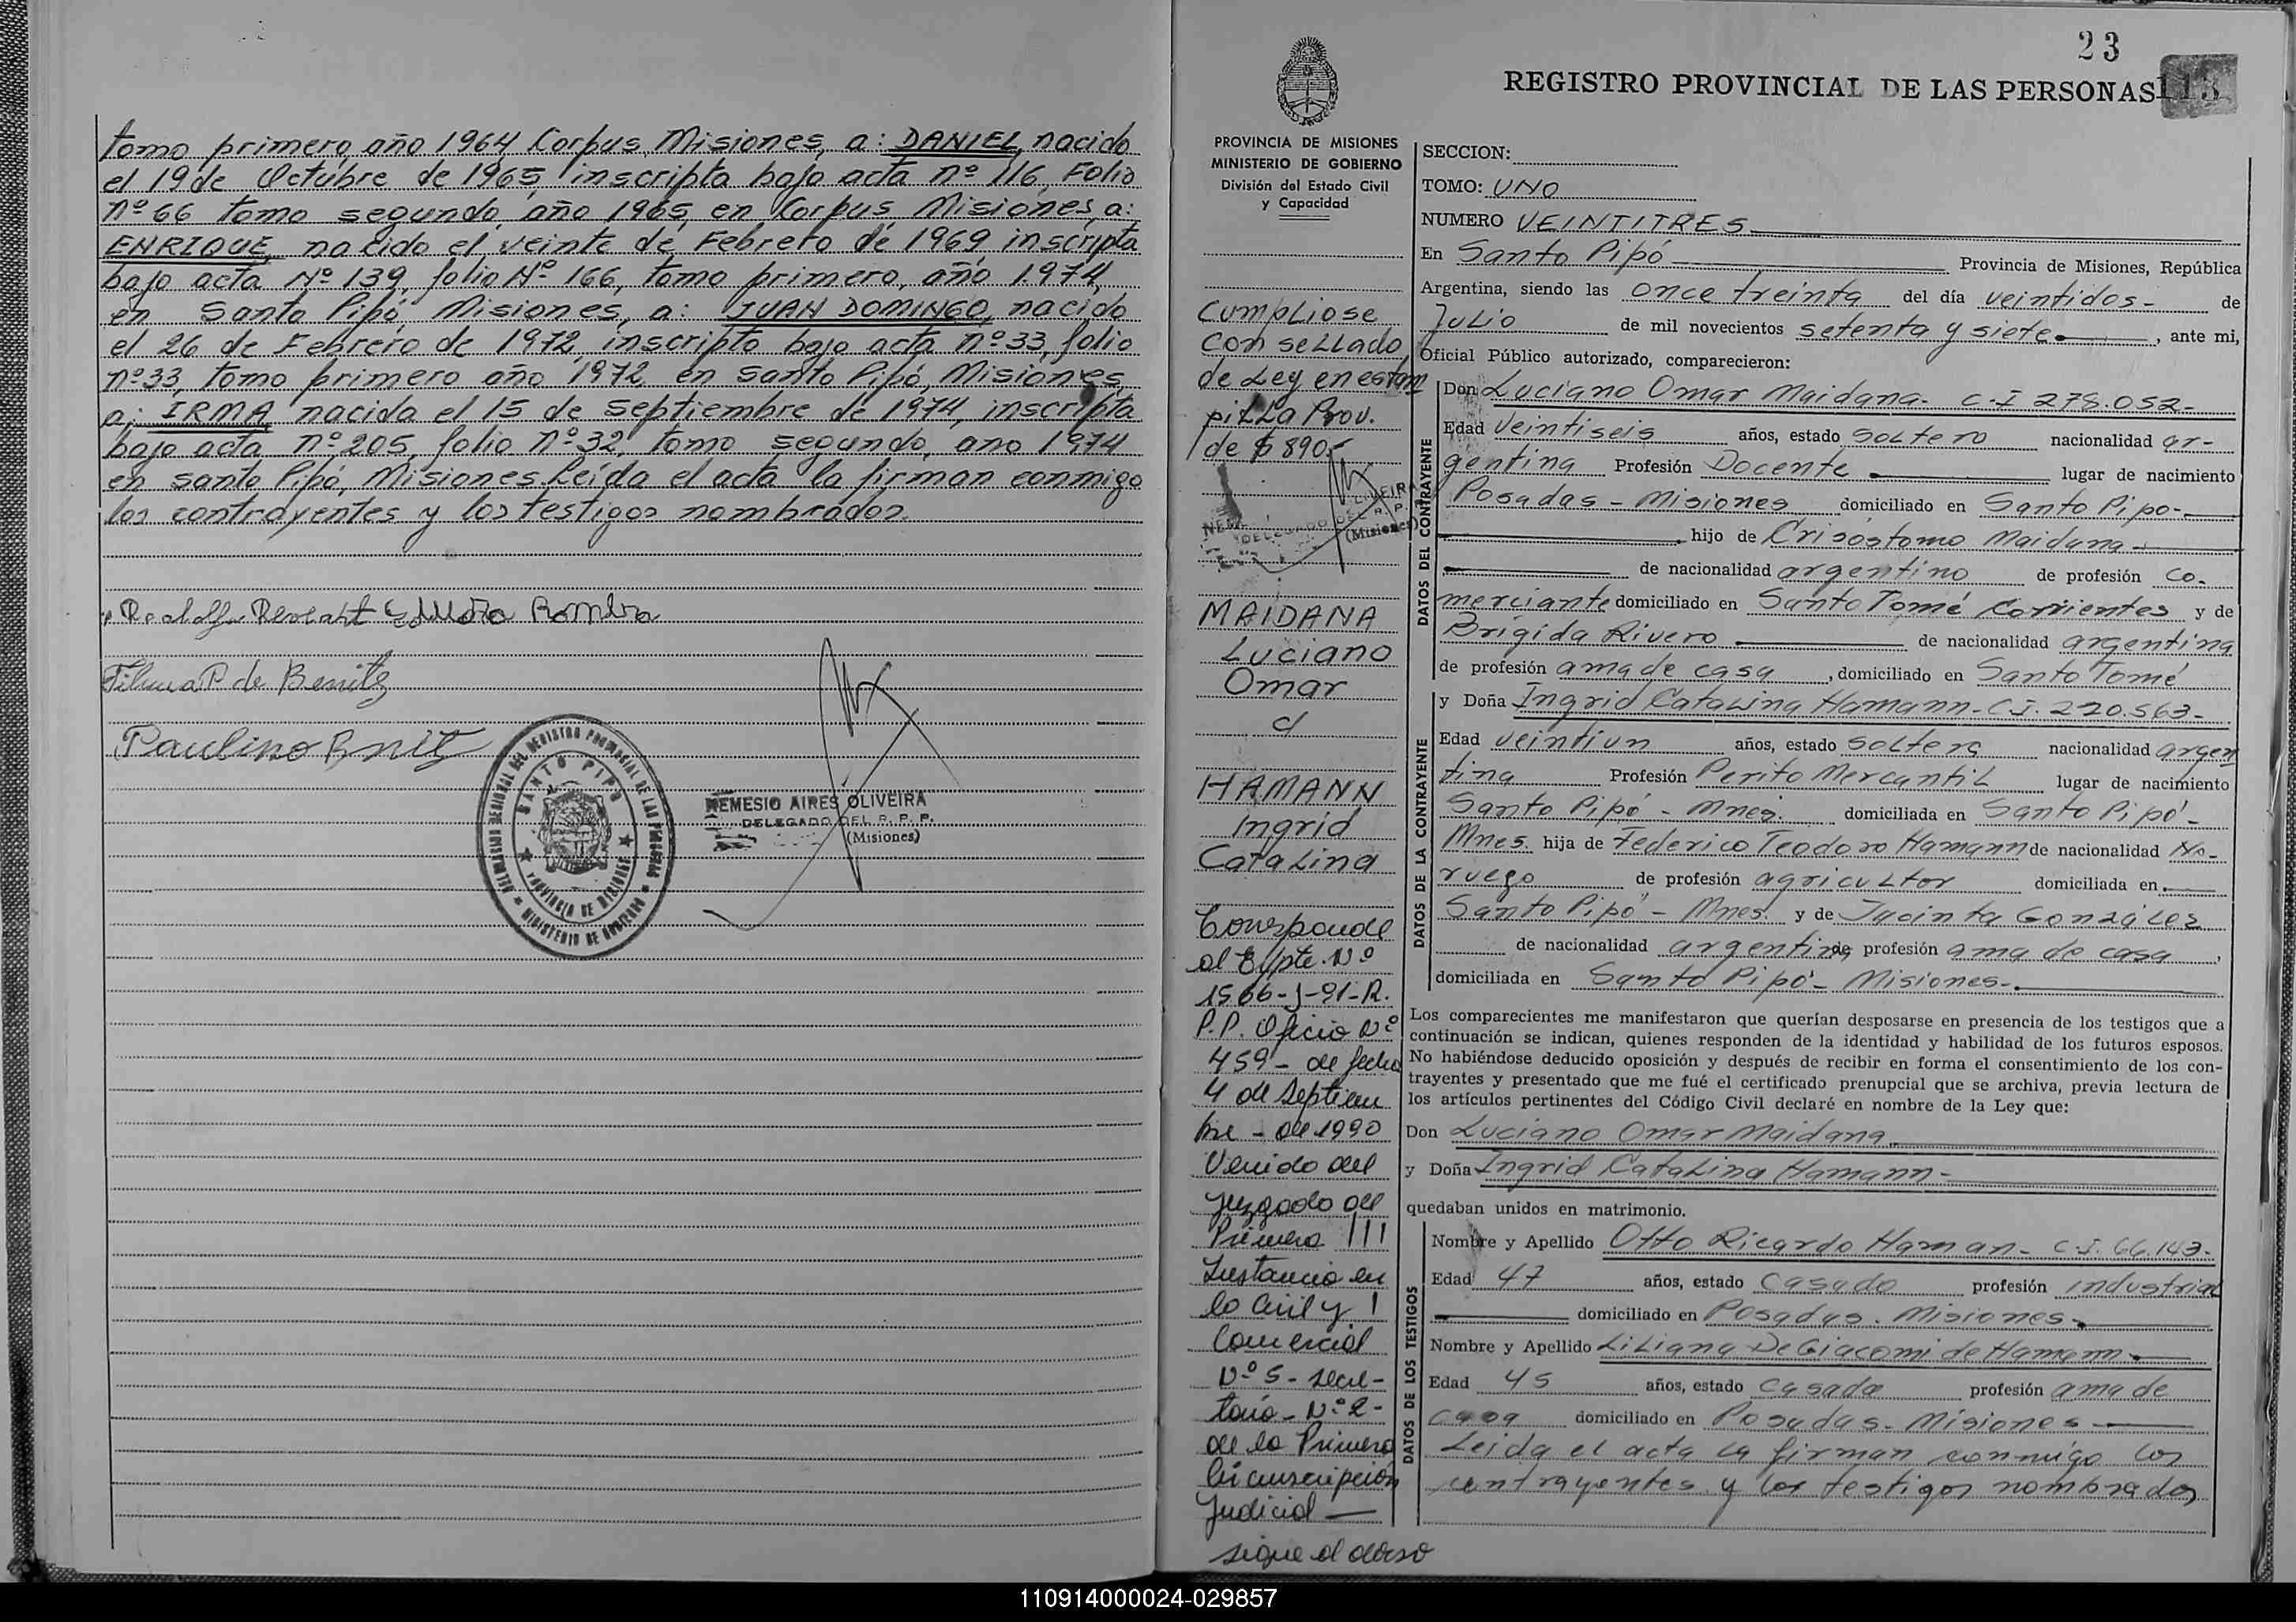 tomo primero, año 1964, Corpus, Misiones, a: DANIEL, nacido
el 19 de Octubre de 1965, inscripta bajo acta nº 116, Folio
nº 66 tomo segundo, año 1965, en Corpus Misiones, a:
ENRIQUE, nacido el veinte de Febrero de 1969 inscripta
bajo acta Nº 139, folio Nº 166, tomo primero, año 1.974,
en Santo Pipó Misiones, a: JUAN DOMINGO, nacido
el 26 de Febrero de 1972, inscripto bajo acta nº 33, folio
nº 33, tomo primero año 1972 en Santo Pipó, Misiones,
a: IRMA nacida el 15 de septiembre de 1974, inscripta
bajo acta nº 205, folio nº 32, tomo segundo, ano 1974
en Santo Pipó, Misiones. Leída el acta la firman conmigo
los contrayentes y los testigos nombrados.
P. de Benitz
Paulino
SANTO PIPO
PROVINCIA DE MISIONES
MINISTERIO DE GOBIERNO
NEMESIO AIRES OLIVEIRA
DELEGADO DEL R. P. P.
(Misiones)
23
REGISTRO PROVINCIAL DE LAS PERSONAS
PROVINCIA DE MISIONES
MINISTERIO DE GOBIERNO
División del Estado Civil
y Capacidad
Cumpliose
con sellado
de Ley en estam
pilla Prov.
de $ 890.-
(Misiones)
MAIDANA
Luciano
Omar
c/
HAMANN
Ingrid
Catalina
Corresponde
al Expte. Nº
1566-J-91-R.
P.P. Oficio Nº
459- de fecha
4 de Septiem
bre - de 1990
Venido del
Juzgado de
Primera
Instancia en
lo Civil y
Comercial
Nº 5 - secre-
taría - Nº 2 -
de la Primera
Circunscripción
Judicial —
sigue al dorso
SECCION:
TOMO: UNO
NUMERO VEINTITRES
En Santo Pipó Provincia de Misiones, República
Argentina, siendo las once treinta del día veintidos- de
Julio de mil novecientos setenta y siete , ante mi,
Oficial Público autorizado, comparecieron:
DATOS DEL CONTRAYENTE
Don: Luciano Omar Maidana- C.I 278.052-
Edad veintiseis años, estado soltero nacionalidad ar-
gentina Profesión Docente lugar de nacimiento
Posadas - Misiones domiciliado en Santo Pipo-
hijo de Crisóstomo Maidana-
de nacionalidad argentino de profesión co-
merciante domiciliado en Santo Tomé Corrientes y de
Brígida Rivero de nacionalidad argentina
de profesión ama de casa , domiciliado en Santo Tomé
DATOS DE LA CONTRAYENTE
y Doña Ingrid Catalina Hamann- C.I. 220.563-
Edad veintiun años, estado soltera nacionalidad argen
tina Profesión Perito Mercantil lugar de nacimiento
Santo Pipó - Mnes. domiciliada en Santo Pipó -
Mnes. hija de Federico Teodoro Hamann de nacionalidad No-
ruego de profesión agricultor domiciliada en
Santo Pipó - Mnes. y de Jacinta González
de nacionalidad argentina de profesión ama de casa ,
domiciliada en Santo Pipó - Misiones-
Los comparecientes me manifestaron que querían desposarse en presencia de los testigos que a
continuación se indican, quienes responden de la identidad y habilidad de los futuros esposos.
No habiéndose deducido oposición y después de recibir en forma el consentimiento de los con-
trayentes y presentado que me fué el certificado prenupcial que se archiva, previa lectura de
los artículos pertinentes del Código Civil declaré en nombre de la Ley que:
Don Luciano Omar Maidana
y Doña Ingrid Catalina Hamann-
quedaban unidos en matrimonio.
DATOS DE LOS TESTIGOS
Nombre y Apellido Otto Ricardo Haman- C.I. 66.143-
Edad 47 años, estado casado profesión industrial
domiciliado en Posadas. Misiones-
Nombre y Apellido Liliana De Giacomi de Hamann
Edad 45 años, estado casada profesión ama de
casa domiciliado en Posadas- Misiones
Leida el acta la firman conmigo los
contrayentes y los testigos nombrados
110914000024-029857